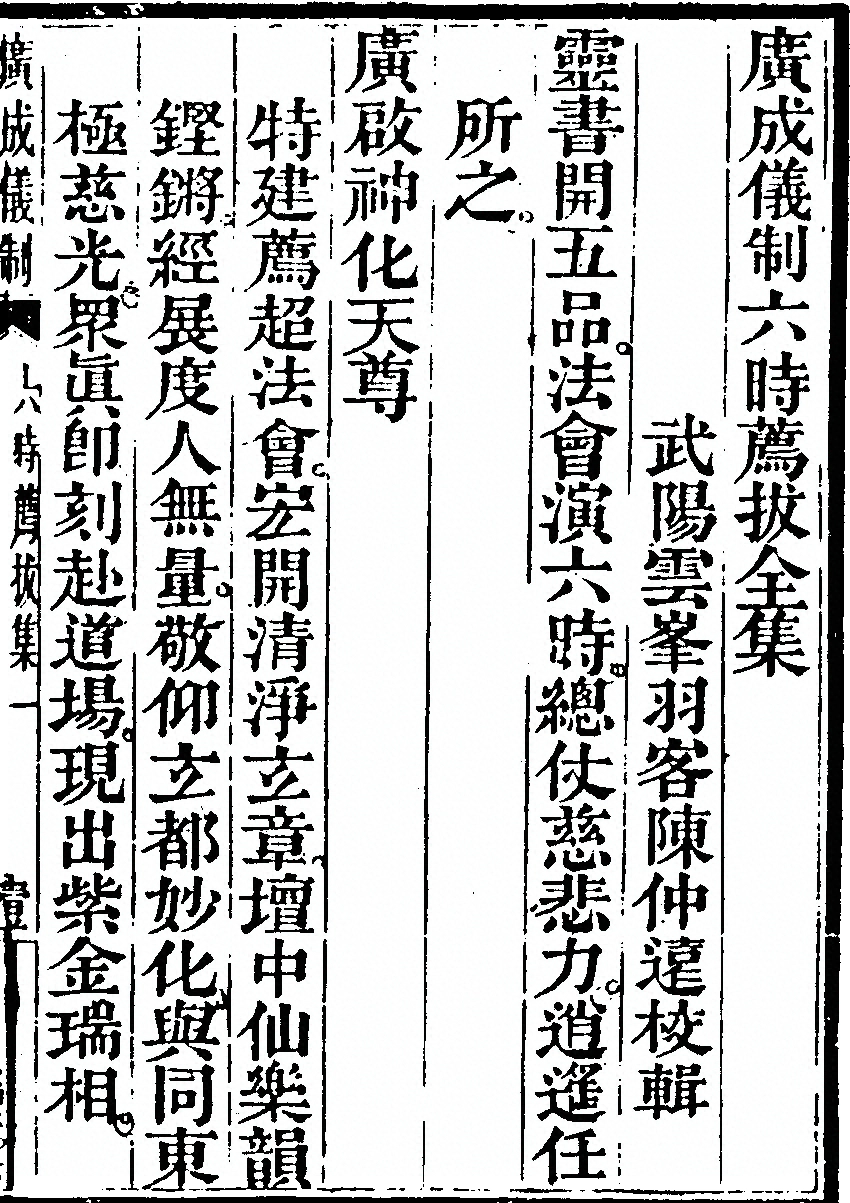 廣成儀制六時薦拔全集
武陽雲峯羽客陳仲遠校輯
靈書開五品。法會演六時。總仗慈悲力。逍遙任
所之。
廣啟神化天尊
特建薦超法會。宏開清淨玄章。壇中仙樂韻
鏗鏘。經展度人無量。敬仰玄都妙化。與同東
極慈光。眾眞卽刻赴道場。現出紫金瑞相。
廣成儀制 六時薦拔集 一 壹